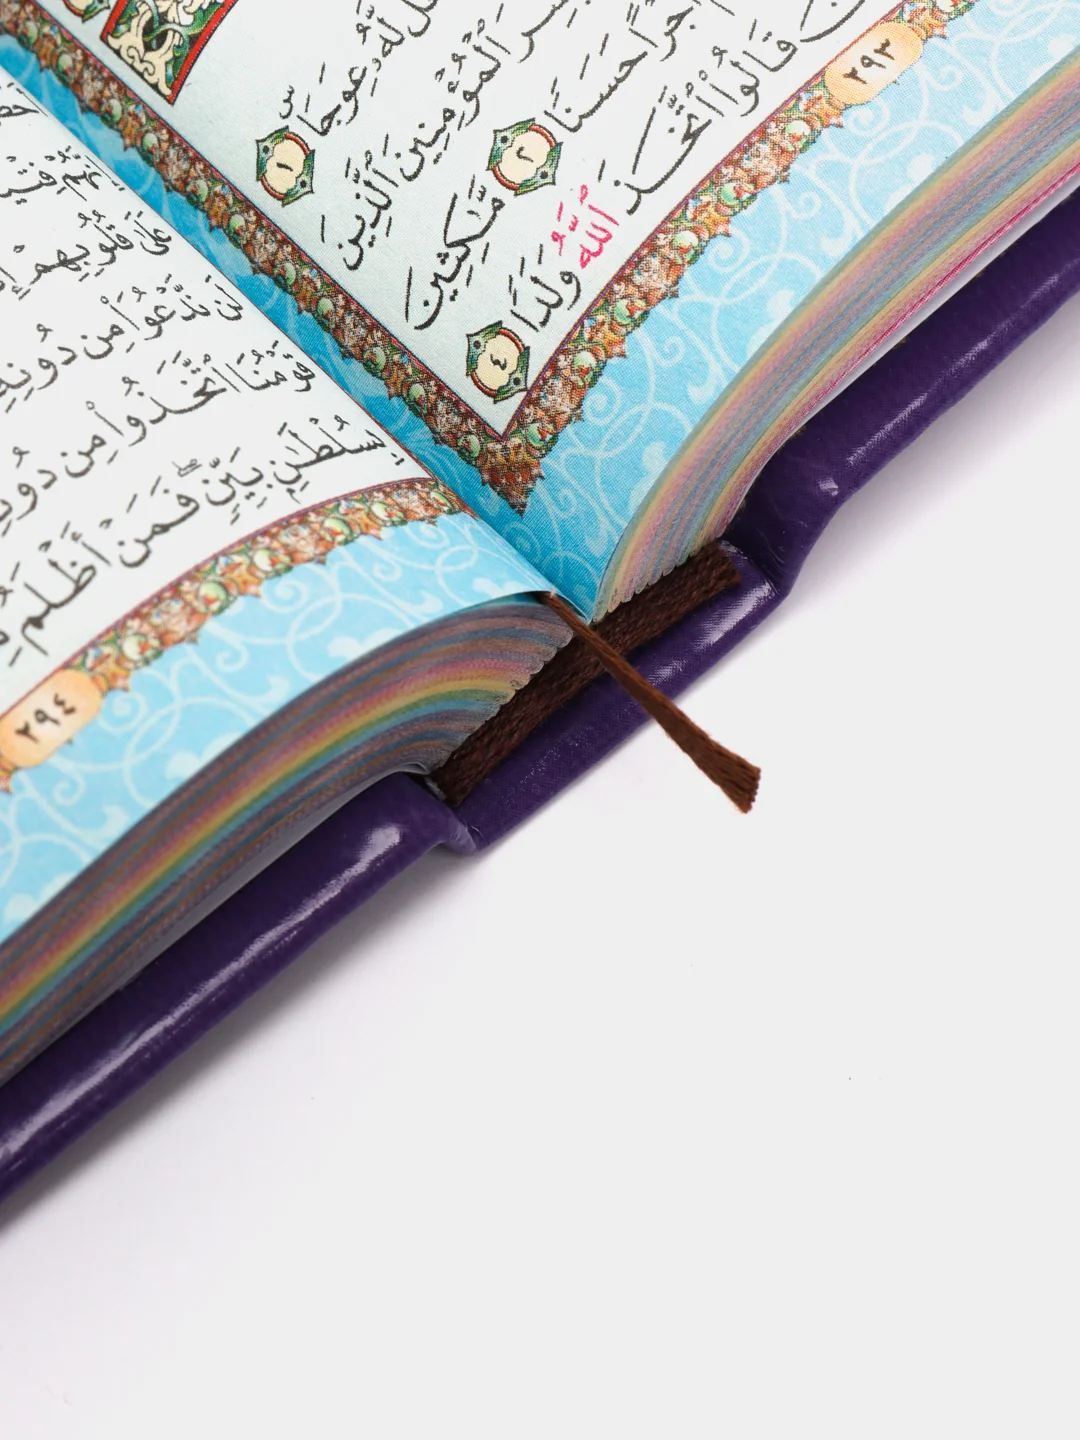 لَّهُۥ عِوَجَاۜ ١
ٱلْمُؤْمِنِينَ ٱلَّذِينَ
أَجْرًا حَسَنًا ٢ مَّٰكِثِينَ
قَالُوا۟ ٱتَّخَذَ ٱللَّهُ وَلَدًا ٤
٢٩٣
قُلُوبِهِمْ
لَن نَّدْعُوَا۟ مِن دُونِهِ
قَوْمُنَا ٱتَّخَذُوا۟ مِن
بِسُلْطَٰنٍۭ بَيِّنٍۖ فَمَنْ أَظْلَمُ
٢٩٤